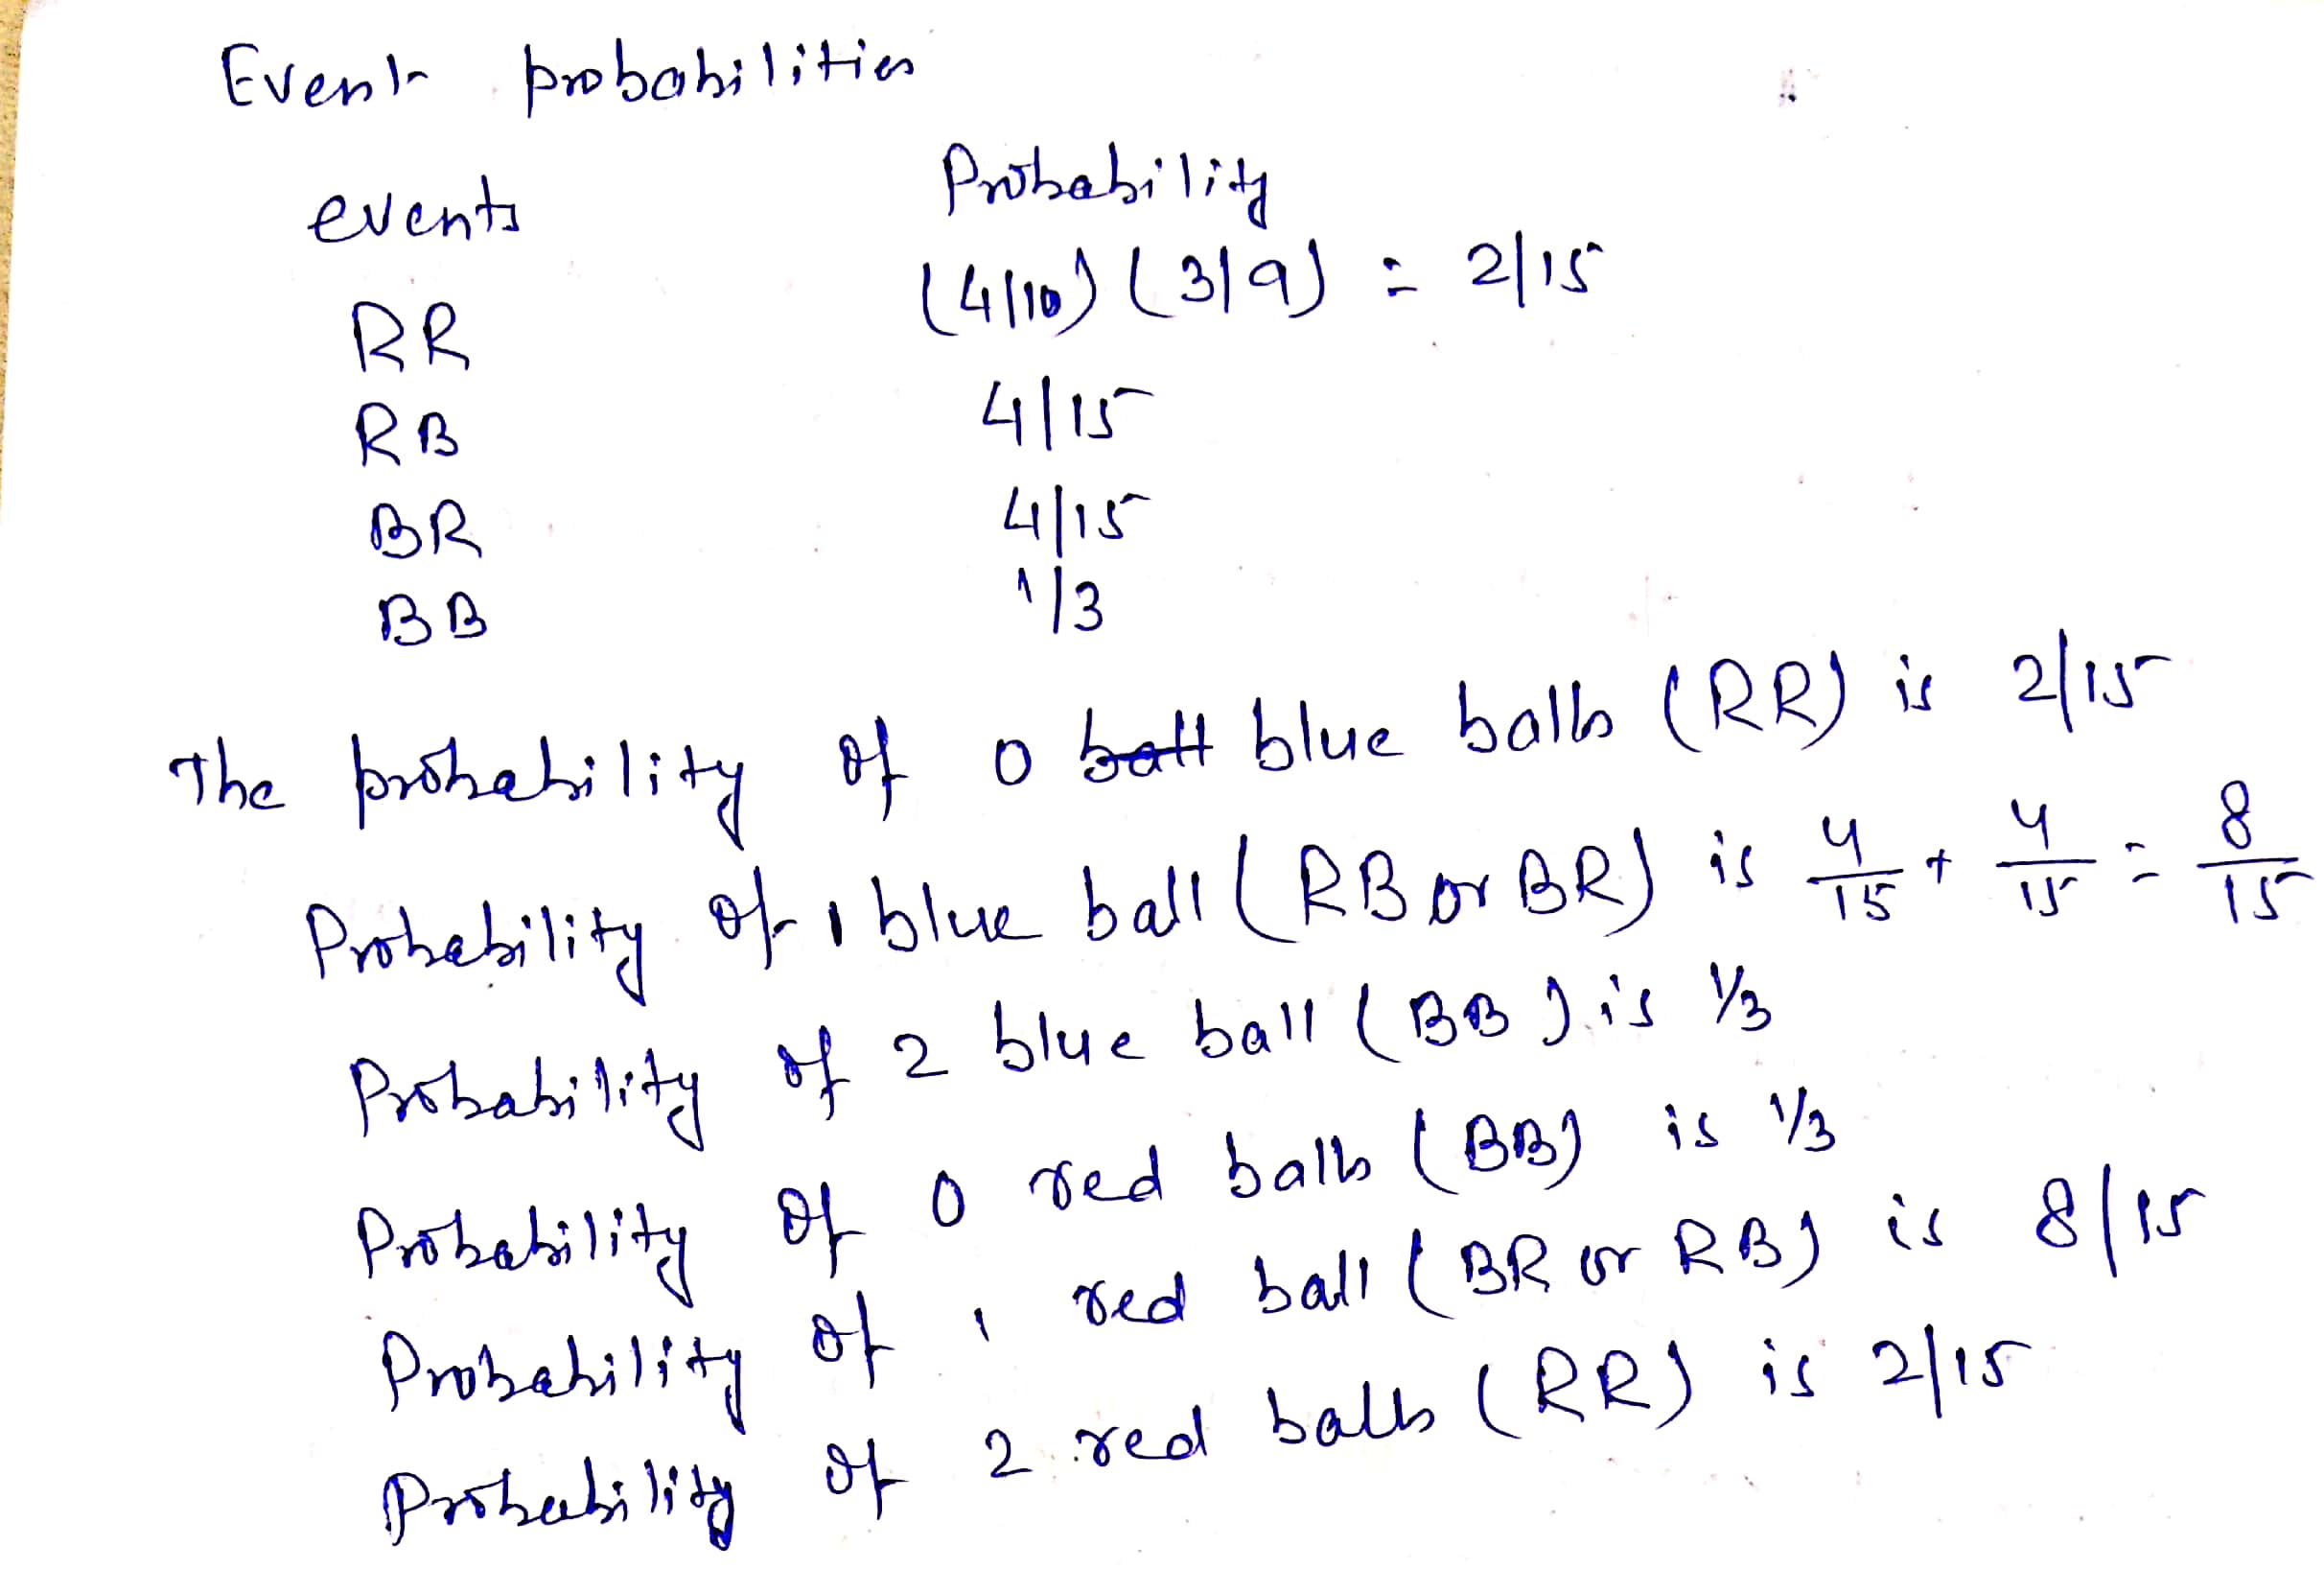 Event probabilities
events Probability
RR (4/10) (3/9) = 2/15
RB 4/15
BR 4/15
BB 1/3
The probability of 0 ball blue balls (RR) is 2/15
Probability of 1 blue ball (RB or BR) is 4/15 + 4/15 = 8/15
Probability of 2 blue ball (BB) is 1/3
Probability of 0 red balls (BB) is 1/3
Probability of 1 red ball (BR or RB) is 8/15
Probability of 2 red balls (RR) is 2/15